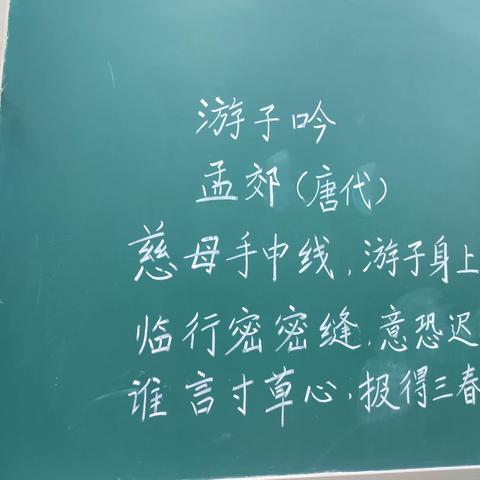 游子吟
孟郊(唐代)
慈母手中线,游子身上
临行密密缝,意恐迟
谁言寸草心,报得三春